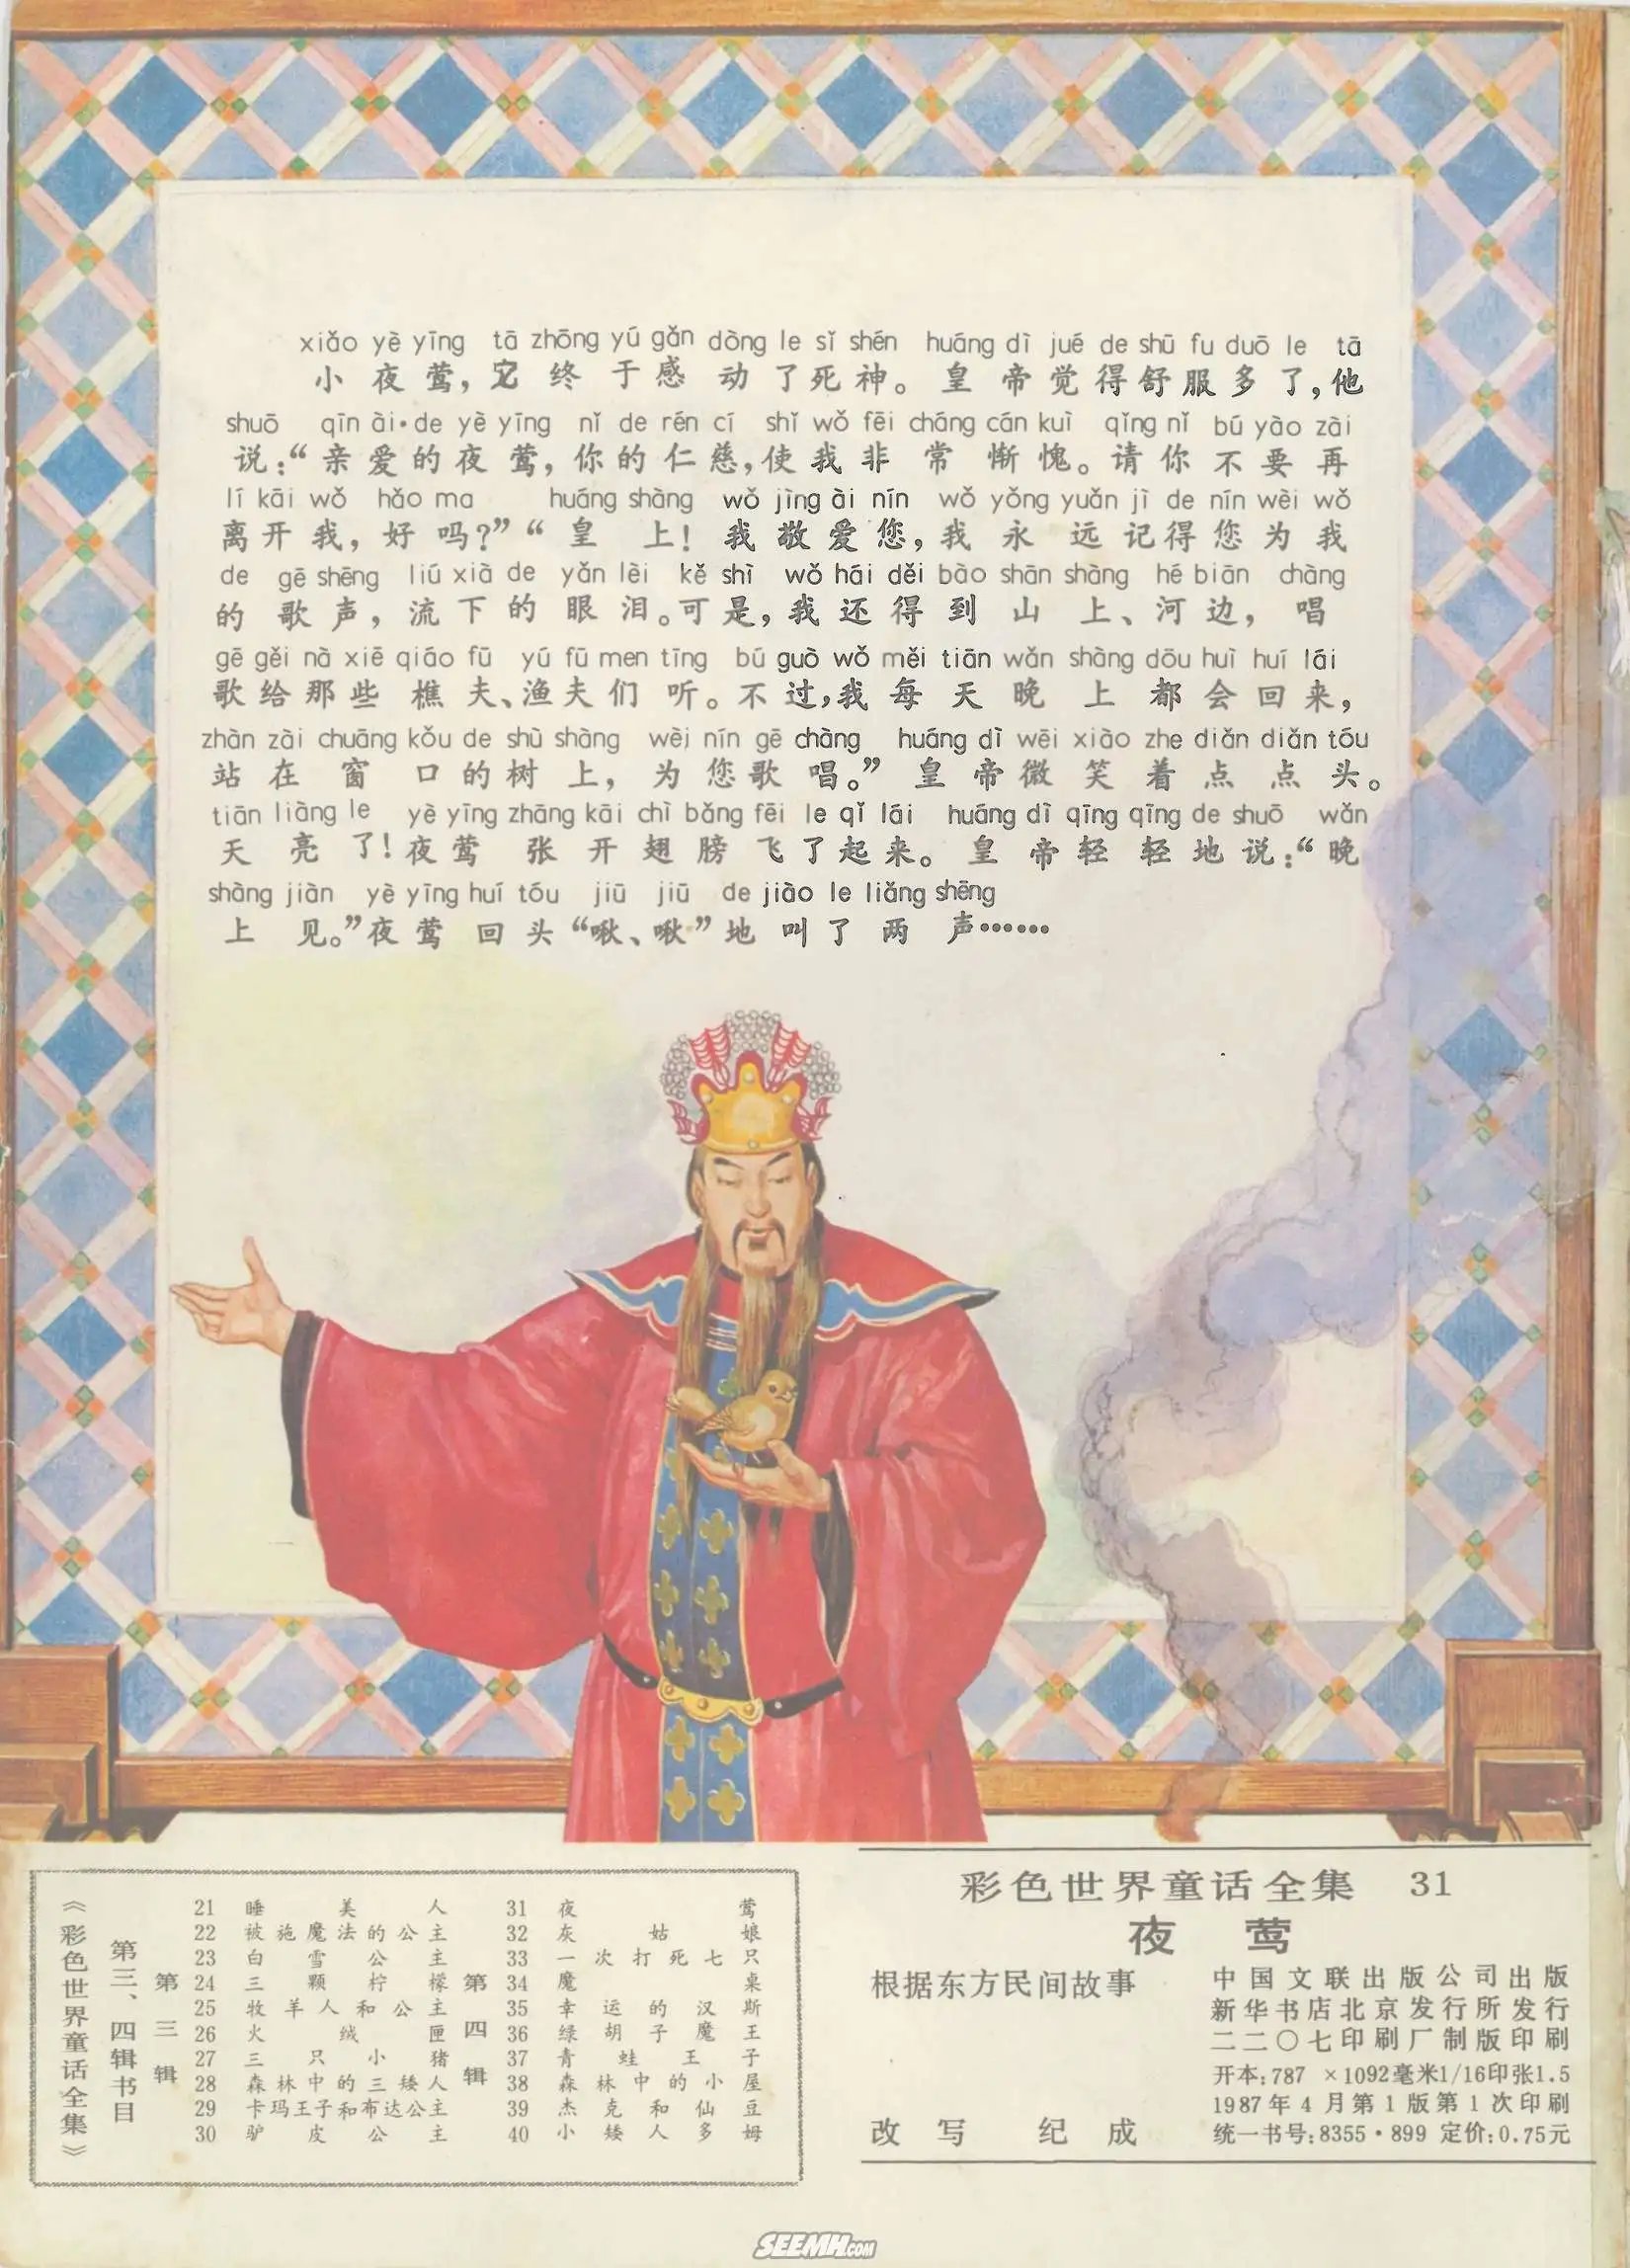 xiǎo yè yīng tā zhōng yú gǎn dòng le sǐ shén huáng dì jué de shū fu duō le tā
小夜莺，它终于感动了死神。皇帝觉得舒服多了，他
shuō qīn ài·de yè yīng nǐ de rén cí shǐ wǒ fēi cháng cán kuì qǐng nǐ bú yào zài
说：“亲爱的夜莺，你的仁慈，使我非常惭愧。请你不要再
lí kāi wǒ hǎo ma huáng shàng wǒ jìng ài nín wǒ yǒng yuǎn jì de nín wèi wǒ
离开我，好吗？”“皇上！我敬爱您，我永远记得您为我
de gē shēng liú xià de yǎn lèi kě shì wǒ hái děi bào shān shàng hé biān chàng
的歌声，流下的眼泪。可是，我还得到山上、河边，唱
gē gěi nà xiē qiáo fū yú fū men tīng bú guò wǒ měi tiān wǎn shàng dōu huì huí lái
歌给那些樵夫、渔夫们听。不过，我每天晚上都会回来，
zhàn zài chuāng kǒu de shù shàng wèi nín gē chàng huáng dì wēi xiào zhe diǎn diǎn tóu
站在窗口的树上，为您歌唱。”皇帝微笑着点点头。
tiān liàng le yè yīng zhāng kāi chì bǎng fēi le qǐ lái huáng dì qīng qīng de shuō wǎn
天亮了！夜莺张开翅膀飞了起来。皇帝轻轻地说：“晚
shàng jiàn yè yīng huí tóu jiū jiū de jiào le liǎng shēng
上见。”夜莺回头“啾、啾”地叫了两声……
《彩色世界童话全集》
第三、四辑书目
第三辑
21 睡美人
22 被施魔法的公主
23 白雪公主
24 三颗柠檬
25 牧羊人和公主
26 火绒匣
27 三只小猪
28 森林中的三矮人
29 卡玛王子和布达公主
30 驴皮公主
第四辑
31 夜莺
32 灰姑娘
33 一次打死七只
34 魔桌
35 幸运的汉斯
36 绿胡子魔王
37 青蛙王子
38 森林中的小屋
39 杰克和仙豆
40 小矮人多姆
彩色世界童话全集 31
夜莺
根据东方民间故事
改写 纪成
中国文联出版公司出版
新华书店北京发行所发行
二二〇七印刷厂制版印刷
开本：787×1092毫米1/16印张1.5
1987年4月第1版第1次印刷
统一书号：8355·899 定价：0.75元
SEEMH.COM